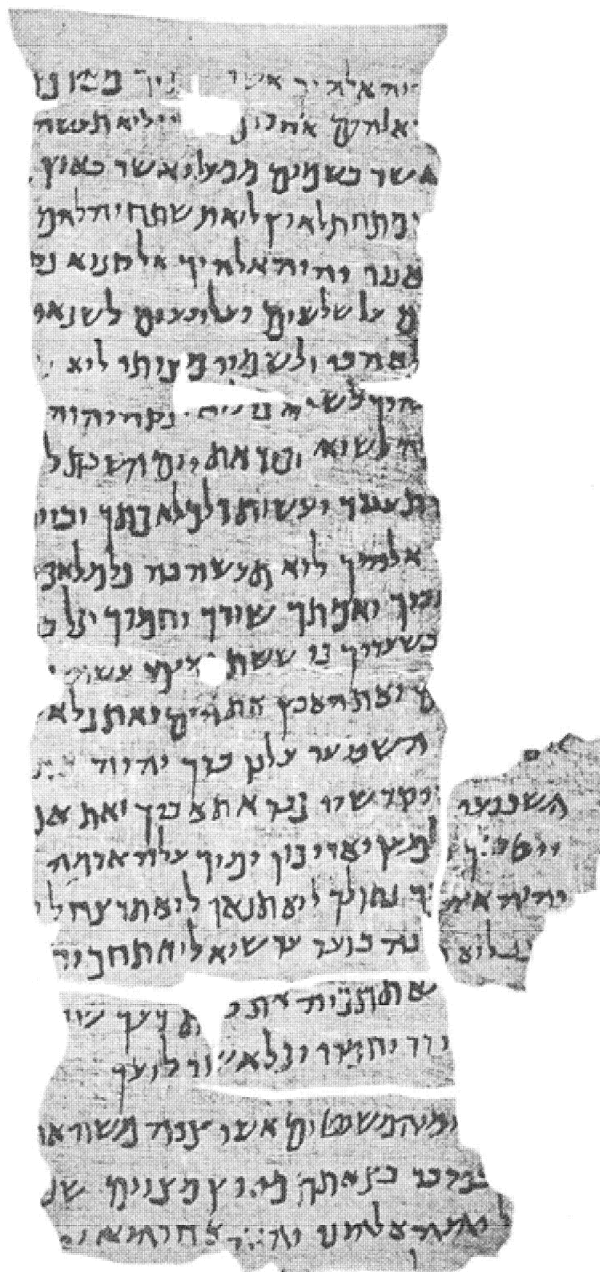 יהוה אלהיך אשר תיך מארץ
אלהים אחרים ני לוא תעשה
אשר בשמים ממעל ואשר בארץ
מתחת לארץ לוא תשתחוה להם
יהוה אלהיך אל קנוא פק
ם על שלשים ועל רבעים לשנאי
לאהבי ולשמרי מצותי לוא
להיך לשוא כי לוא ינקה יהוה
לשוא זכור את יום השבת ל
תעבוד ועשית כל מלאכתך וביום
אלהיך לוא תעשה בה כל מלאכה
עבדך ואמתך שורך וחמרך וכל ב
בשעריך כי ששת ימים עשה י
ם ואת הארץ את הים ואת כל א
השביעי על כן ברך יהוה את
השביעי ויקדשו כבד את אביך ואת אמ
ייטב לך ולמען יאריכון ימיך על האדמה
יהוה אלהיך נתן לך לוא תנאף לוא תרצח לו
לוא תענה ברעך עד שוא לוא תחמוד
את בית רעך שד
ורו וחמרו וכל אשר לרעך
והמשפטים אשר צוה משה את
במדבר בצאתם מארץ מצרים שמ
ל יהוה אלהינו יהוה אחד הוא וא